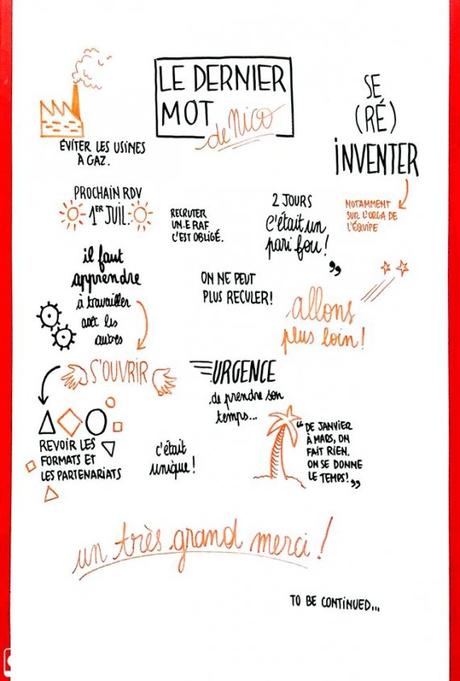 LE DERNIER
MOT
de Nico
SE
(RÉ)
INVENTER
NOTAMMENT
SUR L'ORGA DE
L'ÉQUIPE
ÉVITER LES USINES
À GAZ.
PROCHAIN RDV
1ER JUIL.
RECRUTER
UN.E RAF
C'EST OBLIGÉ.
2 JOURS
c'était un
pari fou!
"
il faut
apprendre
à travailler
avec les
autres
ON NE PEUT
PLUS RECULER!
allons
plus loin!
S'OUVRIR
URGENCE
de prendre son
temps...
REVOIR LES
FORMATS ET
LES PARTENARIATS
c'était
unique!
"DE JANVIER
À MARS, ON
FAIT RIEN.
ON SE DONNE
LE TEMPS!"
un très grand merci!
TO BE CONTINUED...